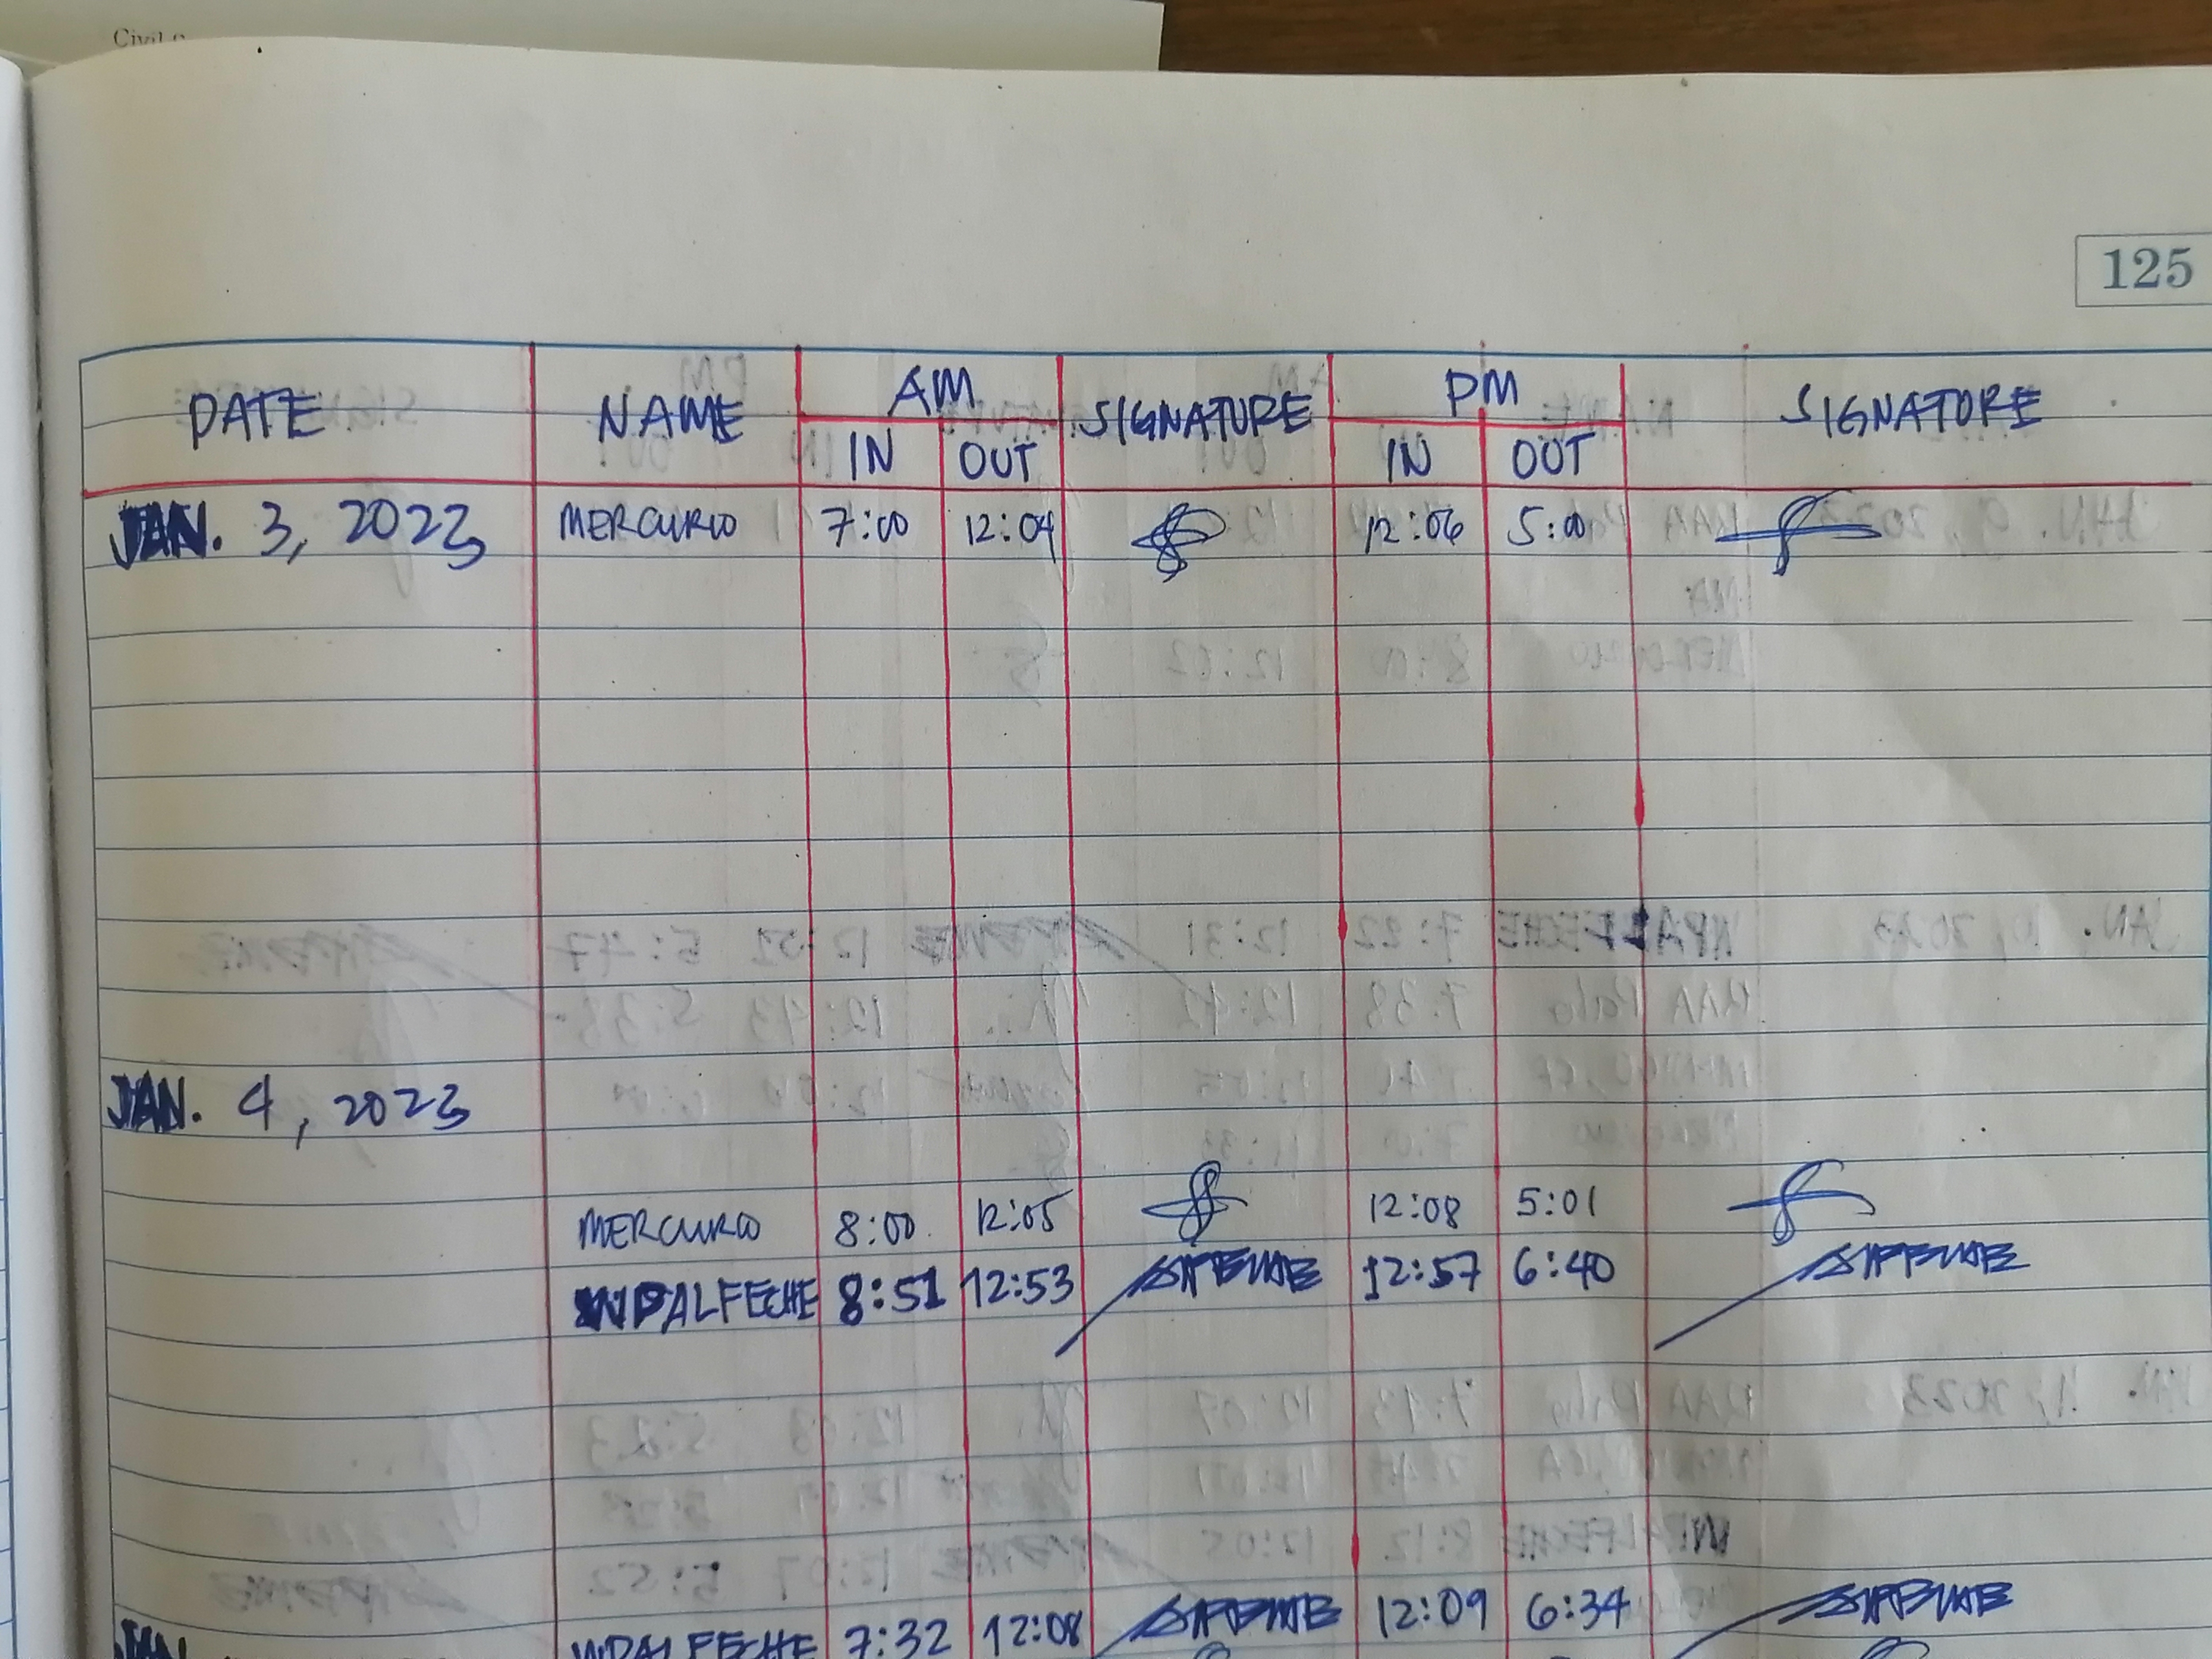 Civil
125
DATE NAME AM SIGNATURE PM SIGNATURE
IN OUT IN OUT
JAN. 3, 2023 MERCURIO 7:00 12:04 12:06 5:00
JAN. 4, 2023
MERCURIO 8:00 12:05 12:08 5:01
WPALFECHE 8:51 12:53 12:57 6:40
JAN. WPALFECHE 7:32 12:08 12:09 6:34